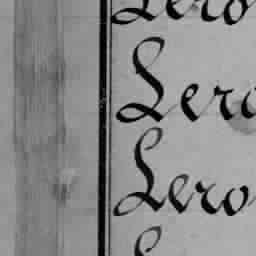 Lero
Lero
Lero